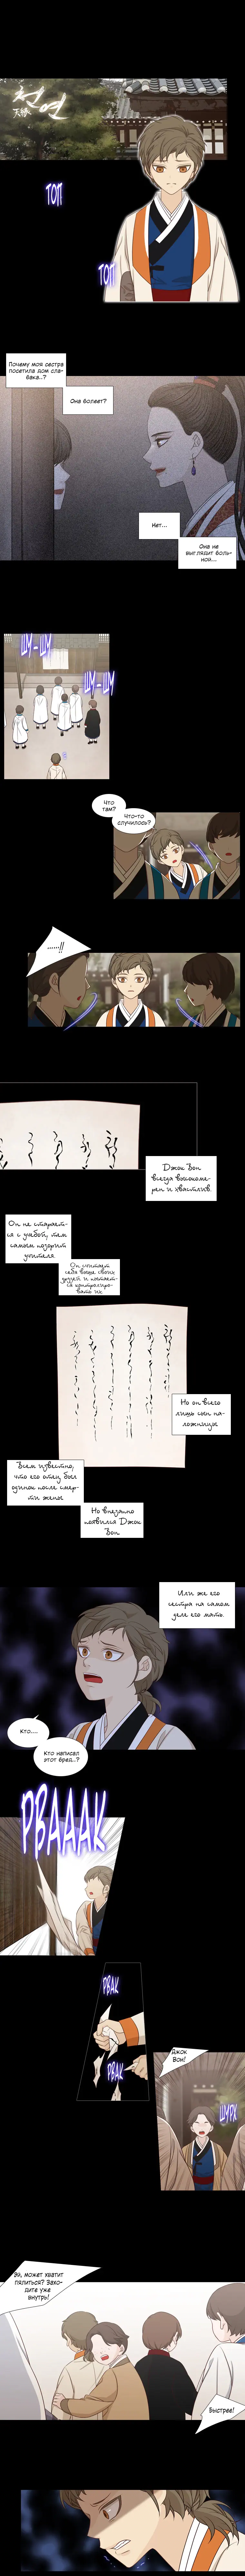 천연
天緣
ТОП
ТОП
Почему моя сестра
посетила дом сла-
бака..?
Она болеет?
Нет...
Она не
выглядит боль-
ной....
ШУ-ШУ
ШУ-ШУ
Что
там?
Что-то
случилось?
......!!
Джок Вон
всегда высокоме-
рен и хвастлив.
Он не старает-
ся с учебой, тем
самым позорит
учителя
Он считает
себя выше своих
друзей и пытает-
ся контролиро-
вать их
Но он всего
лишь сын на-
ложницы
Всем известно,
что его отец был
одинок после смер-
ти жены
Но внезапно
появился Джок
Вон
Или же его
сестра на самом
деле его мать.
Кто....
Кто написал
этот бред..?
РВАААК
РВАК
РВАК
Джок
Вон!
ШУРХ
Эй, может хватит
пялиться? Захо-
дите уже
внутрь!
Быстрее!